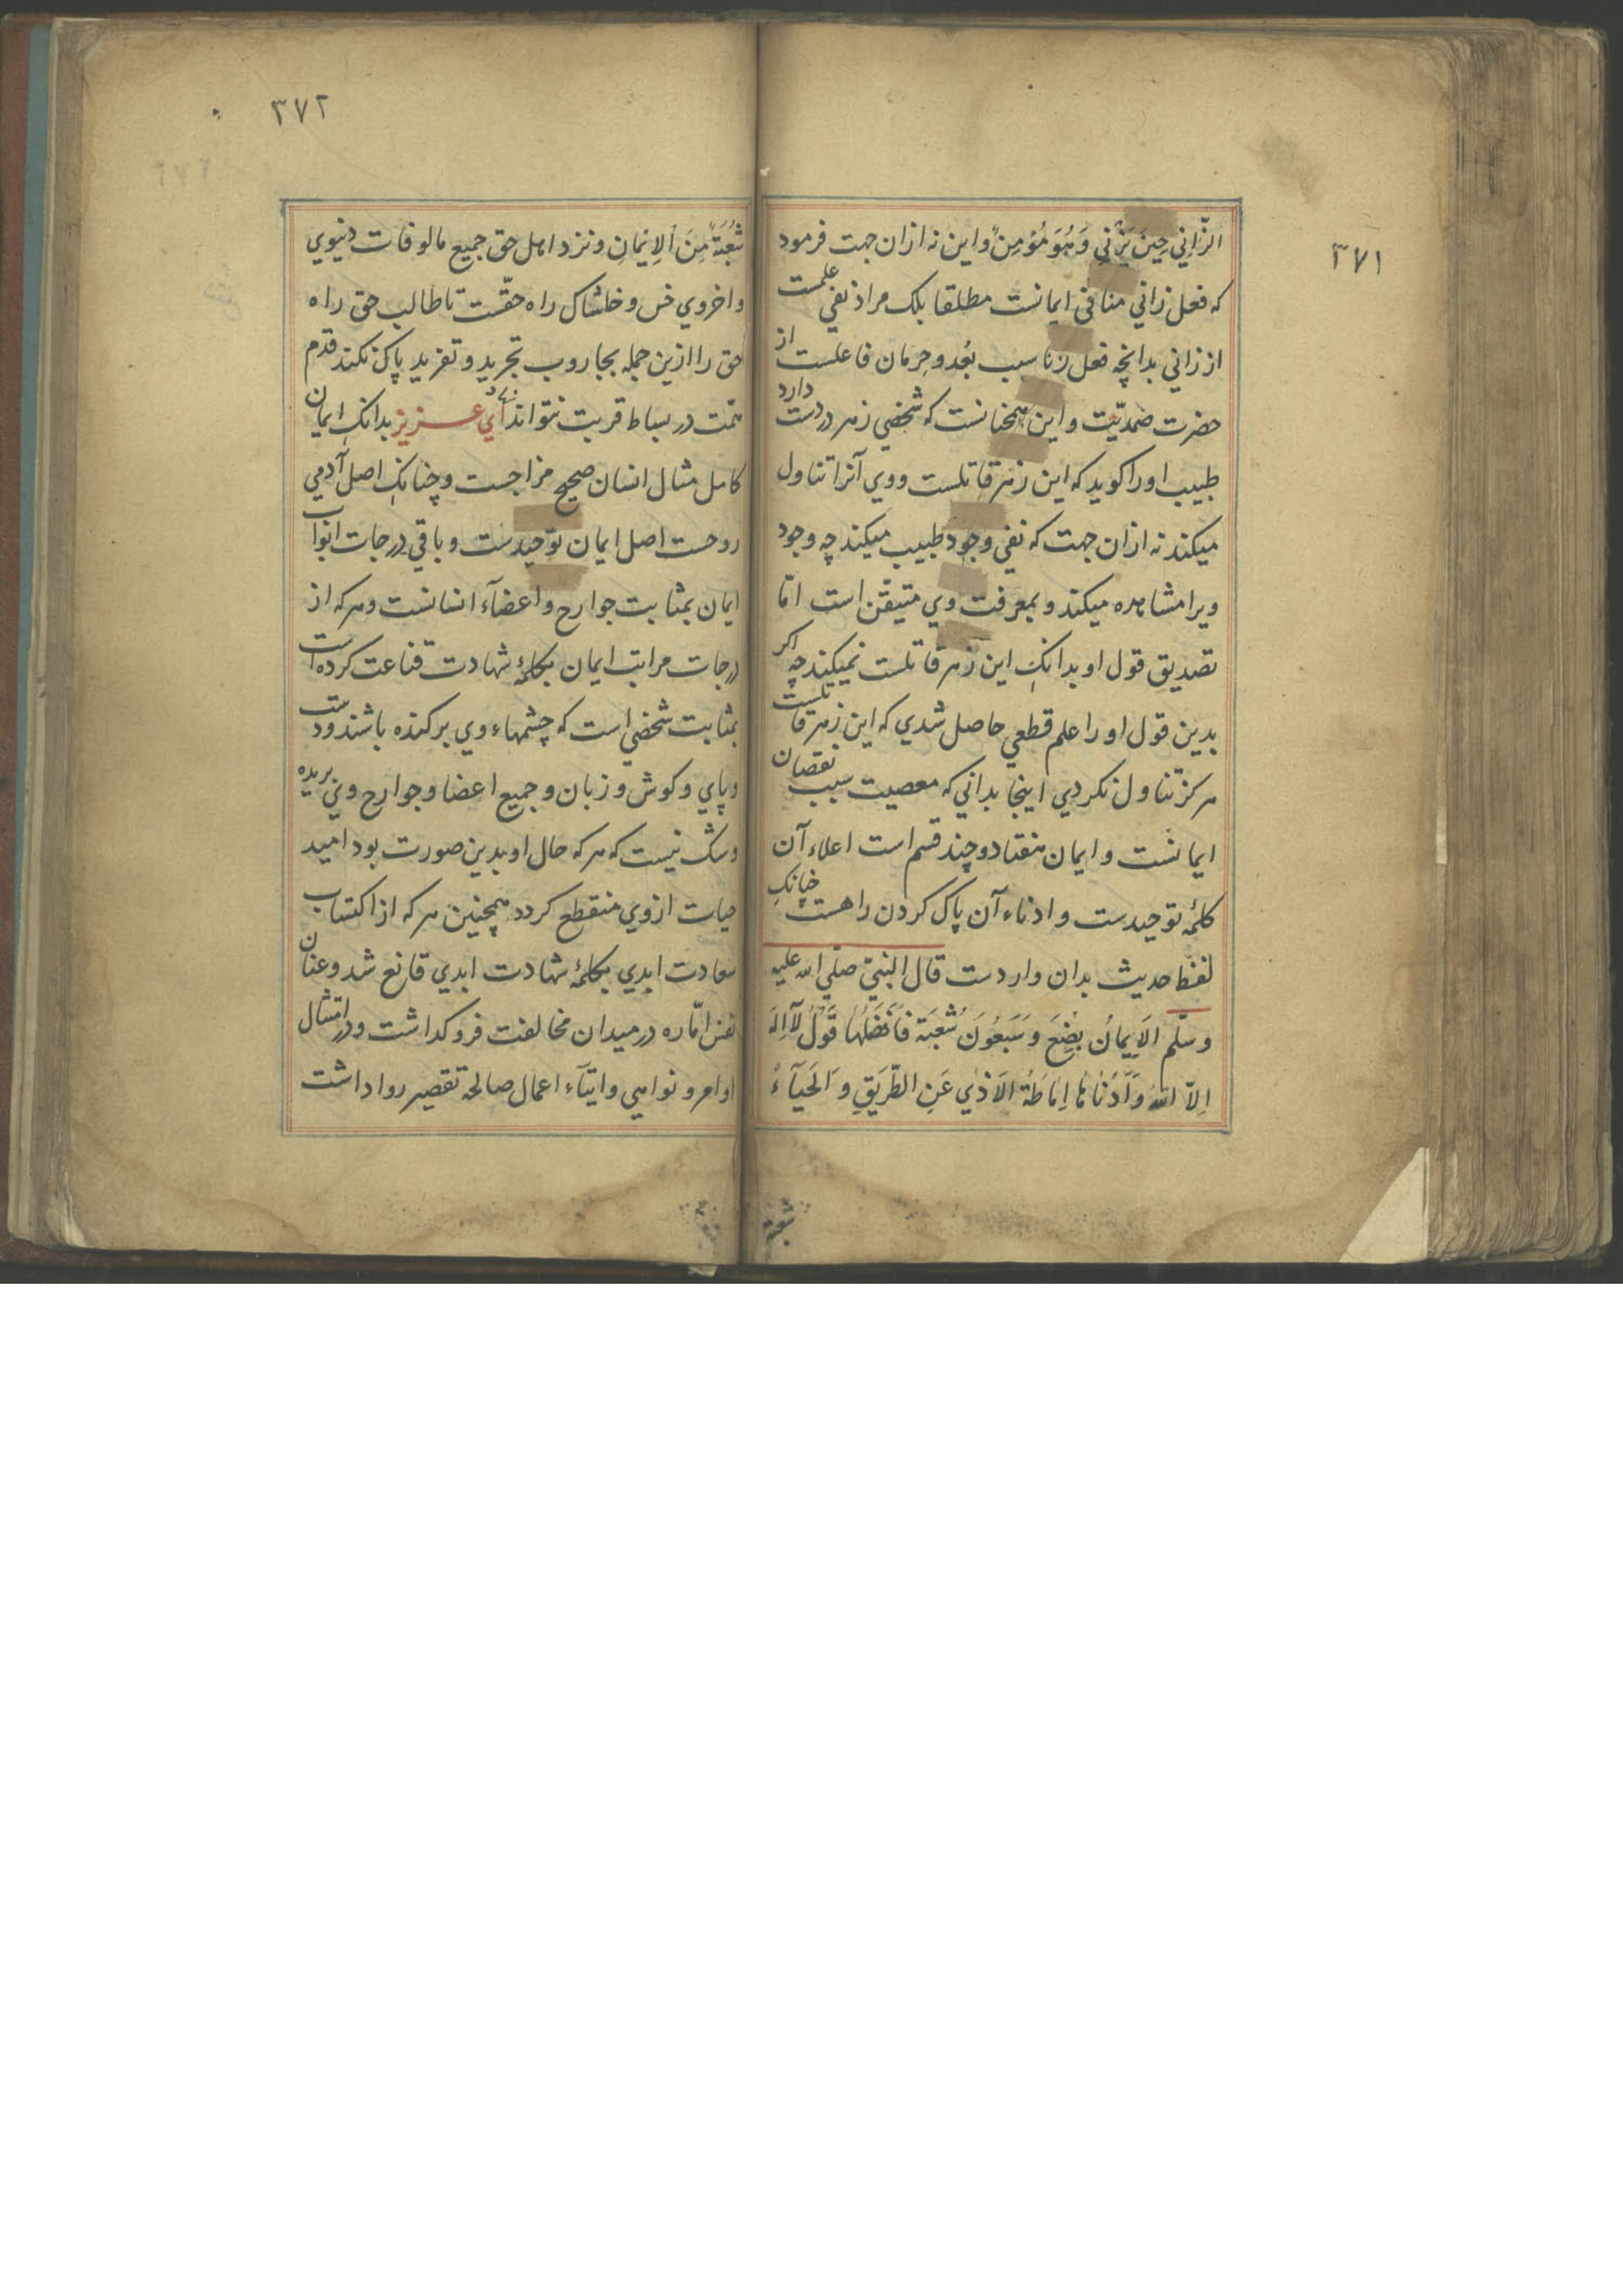 ٣٧١
الزّاني حِينَ يَزْنِي وَهُوَ مُؤمِنٌ واین نه ازان جهت فرمود
که فعل زاني منافی ایمانست مطلقا بلک مراد نفی علمست
از زاني بدانچه فعل زنا سبب بُعد و حِرمان فاعلست از
حضرت صَمدیّت و این همچنانست که شخصي زهر در دست دارد
طبیب اورا کوید که این زهر قاتلست و وي آنرا تناول
میکند نه ازان جهت که نفی وجود طبیب میکند چه وجود
ویرا مشاهده میکند و بمعرفت وي متیقّن است امّا
تصدیق قول او بدانک این زهر قاتلست نمیکند چه اکر
بدین قول او را علم قطعي حاصل شدي که این زهر قاتلست
هرکز تناول نکردي اینجا بداني که معصیت سبب نقصان
ایمانست و ایمان هفتاد و چند قسم است اعلاء آن
کلمهٔ توحیدست و ادناء آن پاک کردن راهست چنانک
لفظ حدیث بدان واردست قال النبيّ صلّي الله علیه
وسلّم الاِیمانُ بِضْعَ وَسَبعُونَ شُعْبَة فَاَفضَلُها قَوْلُ لآاِلَهَ
اِلاّ اللهُ وَاَدْنَاهَا اِمَاطَةُ الاَذْي عَنِ الطَّرِیقِ وَالحَیَآءُ
شعبة
٣٧٢
شُعْبَةٌ مِنَ اْلاِیْمَانِ ونزد اهل حق جمیع مالوفات دنیوي
و اخروي خس و خاشاک راه حقّست تا طالب حق راه
حق را ازین جمله بجاروب تجرید و تفرید پاک نکند قدم
همّت در بساط قربت نتواند اي عزیز بدانک ایمان
کامل مثال انسان صحیح مزاجست و چنانک اصل آدمي
روحست اصل ایمان توحیدست و باقي درجات ابواب
ایمان بمثابت جوارح و اعضآء انسانست و هرکه از
درجات مراتب ایمان بکلمهٔ شهادت قناعت کرده است
بمثابت شخصي است که چشمهاء وي برکنده باشند و دست
و پاي و کوش و زبان و جمیع اعضا و جوارح وي بریده
و شک نیست که هرکه حال او بدین صورت بود امید
حیات ازوي منقطع کردد همچنین هرکه از اکتساب
سعادت ابدي بکلمهٔ شهادت ابدي قانع شد و عنان
نفس امّاره در میدان مخالفت فروکداشت و در امتثال
اوامر و نواهي و ایتآء اعمال صالحة تقصیر روا داشت